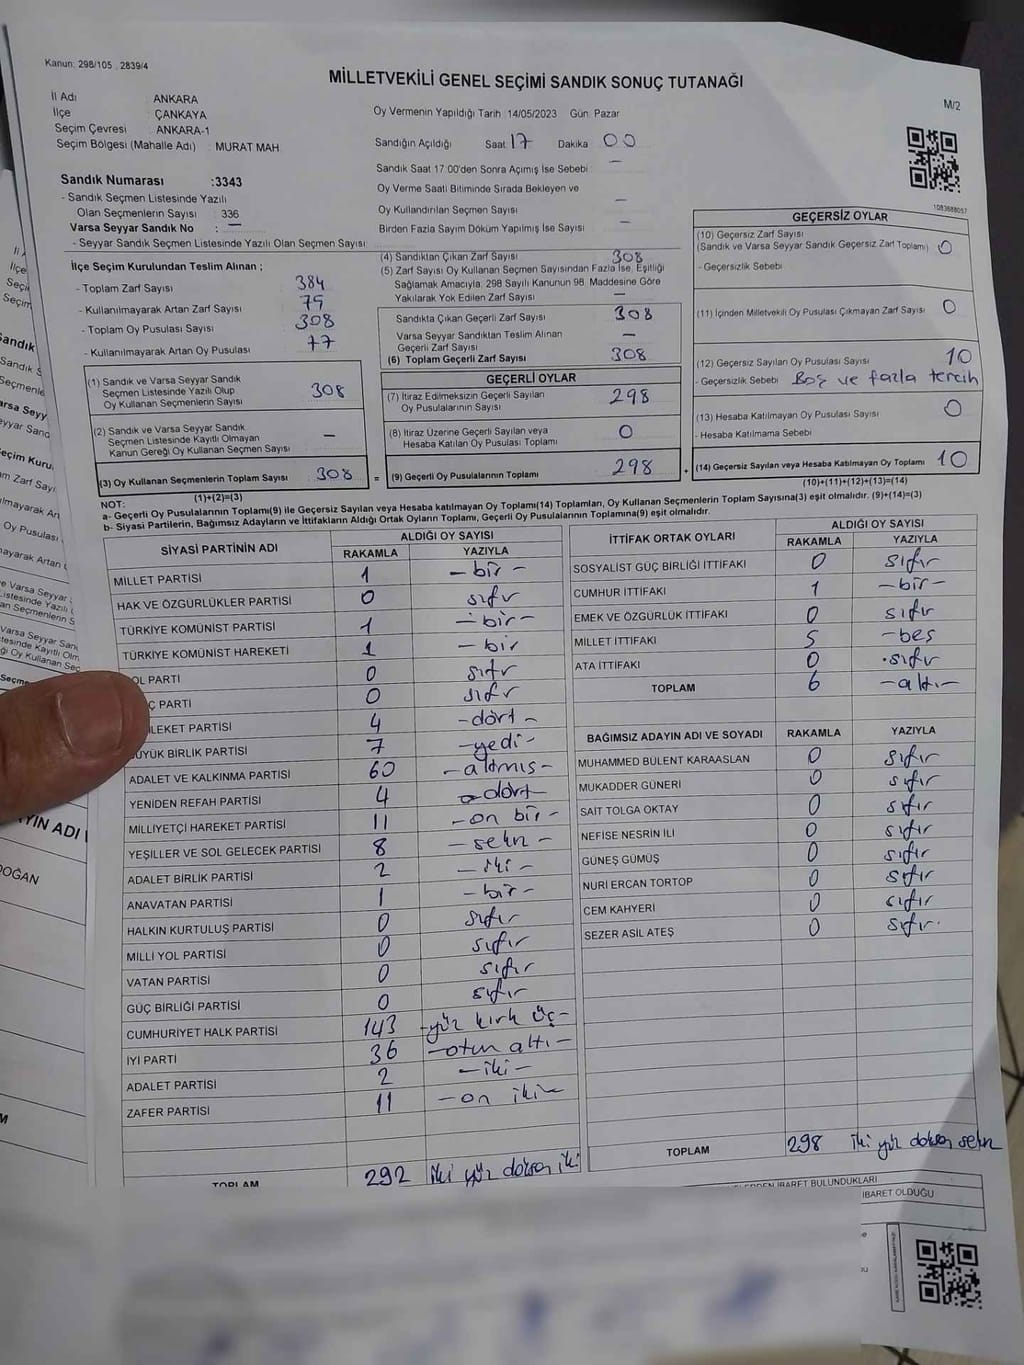 Kanun: 298/105 . 2839/4
MİLLETVEKİLİ GENEL SEÇİMİ SANDIK SONUÇ TUTANAĞI
M/2
İl Adı : ANKARA
İlçe ÇANKAYA
Seçim Çevresi : ANKARA-1
Seçim Bölgesi (Mahalle Adı) : MURAT MAH
Oy Vermenin Yapıldığı Tarih : 14/05/2023 Gün: Pazar
Sandığın Açıldığı Saat 17 Dakika 00
Sandık Saat 17:00'den Sonra Açılmış İse Sebebi : —
Oy Verme Saati Bitiminde Sırada Bekleyen ve
Oy Kullandırılan Seçmen Sayısı —
Birden Fazla Sayım Döküm Yapılmış İse Sayısı : —
Sandık Numarası :3343
- Sandık Seçmen Listesinde Yazılı
Olan Seçmenlerin Sayısı : 336
Varsa Seyyar Sandık No : —
- Seyyar Sandık Seçmen Listesinde Yazılı Olan Seçmen Sayısı :
1083688057
İlçe Seçim Kurulundan Teslim Alınan ;
- Toplam Zarf Sayısı 384
- Kullanılmayarak Artan Zarf Sayısı
- Toplam Oy Pusulası Sayısı 308
- Kullanılmayarak Artan Oy Pusulası 77
(4) Sandıktan Çıkan Zarf Sayısı 308
(5) Zarf Sayısı Oy Kullanan Seçmen Sayısından Fazla İse, Eşitliği
Sağlamak Amacıyla, 298 Sayılı Kanunun 98. Maddesine Göre
Yakılarak Yok Edilen Zarf Sayısı —
Sandıkta Çıkan Geçerli Zarf Sayısı 308
Varsa Seyyar Sandıktan Teslim Alınan
Geçerli Zarf Sayısı —
(6) Toplam Geçerli Zarf Sayısı 308
(1) Sandık ve Varsa Seyyar Sandık
Seçmen Listesinde Yazılı Olup
Oy Kullanan Seçmenlerin Sayısı 308
(2) Sandık ve Varsa Seyyar Sandık
Seçmen Listesinde Kayıtlı Olmayan
Kanun Gereği Oy Kullanan Seçmen Sayısı —
(3) Oy Kullanan Seçmenlerin Toplam Sayısı 308
(1)+(2)=(3)
=
GEÇERLİ OYLAR
(7) İtiraz Edilmeksizin Geçerli Sayılan
Oy Pusulalarının Sayısı 298
(8) İtiraz Üzerine Geçerli Sayılan veya
Hesaba Katılan Oy Pusulası Toplamı 0
(9) Geçerli Oy Pusulalarının Toplamı 298
+
GEÇERSİZ OYLAR
(10) Geçersiz Zarf Sayısı
(Sandık ve Varsa Seyyar Sandık Geçersiz Zarf Toplamı) 0
- Geçersizlik Sebebi
(11) İçinden Milletvekili Oy Pusulası Çıkmayan Zarf Sayısı 0
(12) Geçersiz Sayılan Oy Pusulası Sayısı 10
- Geçersizlik Sebebi Boş ve fazla tercih
(13) Hesaba Katılmayan Oy Pusulası Sayısı 0
- Hesaba Katılmama Sebebi
(14) Geçersiz Sayılan veya Hesaba Katılmayan Oy Toplamı 10
(10)+(11)+(12)+(13)=(14)
NOT:
a- Geçerli Oy Pusulalarının Toplamı(9) ile Geçersiz Sayılan veya Hesaba katılmayan Oy Toplamı(14) Toplamları, Oy Kullanan Seçmenlerin Toplam Sayısına(3) eşit olmalıdır. (9)+(14)=(3)
b- Siyasi Partilerin, Bağımsız Adayların ve İttifakların Aldığı Ortak Oyların Toplamı, Geçerli Oy Pusulalarının Toplamına(9) eşit olmalıdır.
SİYASİ PARTİNİN ADI ALDIĞI OY SAYISI
RAKAMLA YAZIYLA
MİLLET PARTİSİ 1 - bir -
HAK VE ÖZGÜRLÜKLER PARTİSİ 0 sıfır
TÜRKİYE KOMÜNİST PARTİSİ 1 - bir -
TÜRKİYE KOMÜNİST HAREKETİ 1 - bir
OL PARTİ 0 sıfır
Ç PARTİ 0 sıfır
LEKET PARTİSİ 4 - dört -
ÜYÜK BİRLİK PARTİSİ 7 - yedi -
ADALET VE KALKINMA PARTİSİ 60 - altmış -
YENİDEN REFAH PARTİSİ 4 - dört
MİLLİYETÇİ HAREKET PARTİSİ 11 - on bir -
YEŞİLLER VE SOL GELECEK PARTİSİ 8 - sekiz -
ADALET BİRLİK PARTİSİ 2 - iki -
ANAVATAN PARTİSİ 1 - bir -
HALKIN KURTULUŞ PARTİSİ 0 sıfır
MİLLİ YOL PARTİSİ 0 sıfır
VATAN PARTİSİ 0 sıfır
GÜÇ BİRLİĞİ PARTİSİ 0 sıfır
CUMHURİYET HALK PARTİSİ 143 - yüz kırk üç -
İYİ PARTİ 36 - otuz altı -
ADALET PARTİSİ 2 - iki -
ZAFER PARTİSİ 11 - on iki -
TOPLAM 292 iki yüz doksan iki
İTTİFAK ORTAK OYLARI ALDIĞI OY SAYISI
RAKAMLA YAZIYLA
SOSYALİST GÜÇ BİRLİĞİ İTTİFAKI 0 sıfır
CUMHUR İTTİFAKI 1 - bir -
EMEK VE ÖZGÜRLÜK İTTİFAKI 0 sıfır
MİLLET İTTİFAKI 5 - beş
ATA İTTİFAKI 0 sıfır
TOPLAM 6 - altı -
BAĞIMSIZ ADAYIN ADI VE SOYADI RAKAMLA YAZIYLA
MUHAMMED BÜLENT KARAASLAN 0 sıfır
MUKADDER GÜNERİ 0 sıfır
SAİT TOLGA OKTAY 0 sıfır
NEFİSE NESRİN İLİ 0 sıfır
GÜNEŞ GÜMÜŞ 0 sıfır
NURİ ERCAN TORTOP 0 sıfır
CEM KAHYERİ 0 sıfır
SEZER ASİL ATEŞ 0 sıfır
TOPLAM 298 iki yüz doksan sekiz
İBARET BULUNDUKLARI
İBARET OLDUĞU